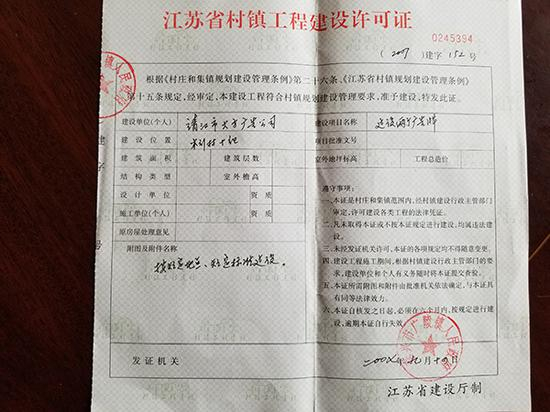 江苏省村镇工程建设许可证
0245394
(2007) 建字 152 号
根据《村庄和集镇规划建设管理条例》第二十六条、《江苏省村镇规划建设管理条例》
第十五条规定,经审定,本建设工程符合村镇规划建设管理要求,准予建设,特发此证。
建设单位(个人) 靖江市大方广告公司
建设项目名称
建设位置
项目批准文号
建筑面积
建筑层数
室外地坪标高
工程总造价
结构类型
室外檐高
设计单位
资质
施工单位(个人)
资质
原房屋处理意见
附图及附件名称
遵守事项:
一、本证是村庄和集镇范围内,经村镇建设行政主管部门
审定,许可建设各类工程的法律凭证。
二、凡未取得本证或不按本证规定进行建设,均属违法建
设。
三、未经发证机关许可,本证的各项规定均不得随意变更。
四、建设工程施工期间,根据村镇建设行政主管部门的要
求,建设单位和个人有义务随时将本证提交查验。
五、本证所需附图和附件由批准机关依法确定,与本证具
有同等法律效力。
六、本证自核发之日起,必须在六个月内,按规定进行建
设,逾期本证自行失效。
发证机关
江苏省建设厅制
建字
号